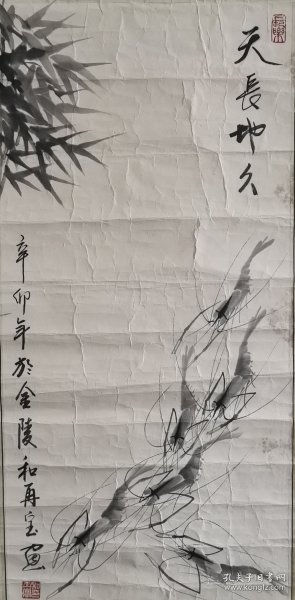 天長地久
辛卯年於金陵和再宝画
孔夫子旧书网
www.kongfz.com